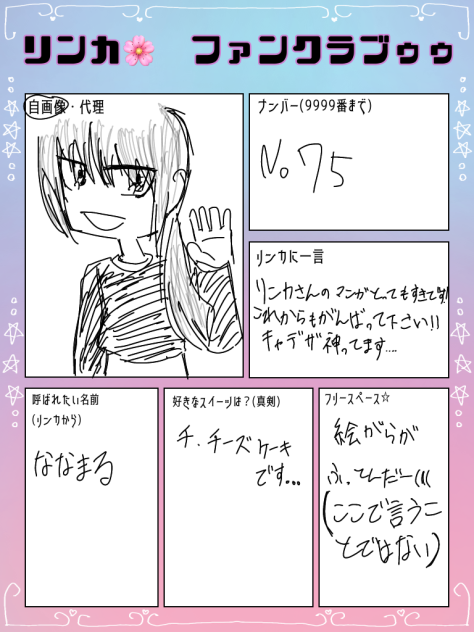 リンカ🌸 ファンクラブゥゥ
自画像・代理
ナンバー(9999番まで)
No 75
リンカに一言
リンカさんのマンガとってもすきです!
これからもがんばって下さい!!
キャデザ神ってます....
呼ばれたい名前
(リンカから)
ななまる
好きなスイーツは?(真剣)
チ、チーズケーキ
です...
フリースペース☆
絵がらが
ふ、てんだー(((
(ここで言うこ
とではない)